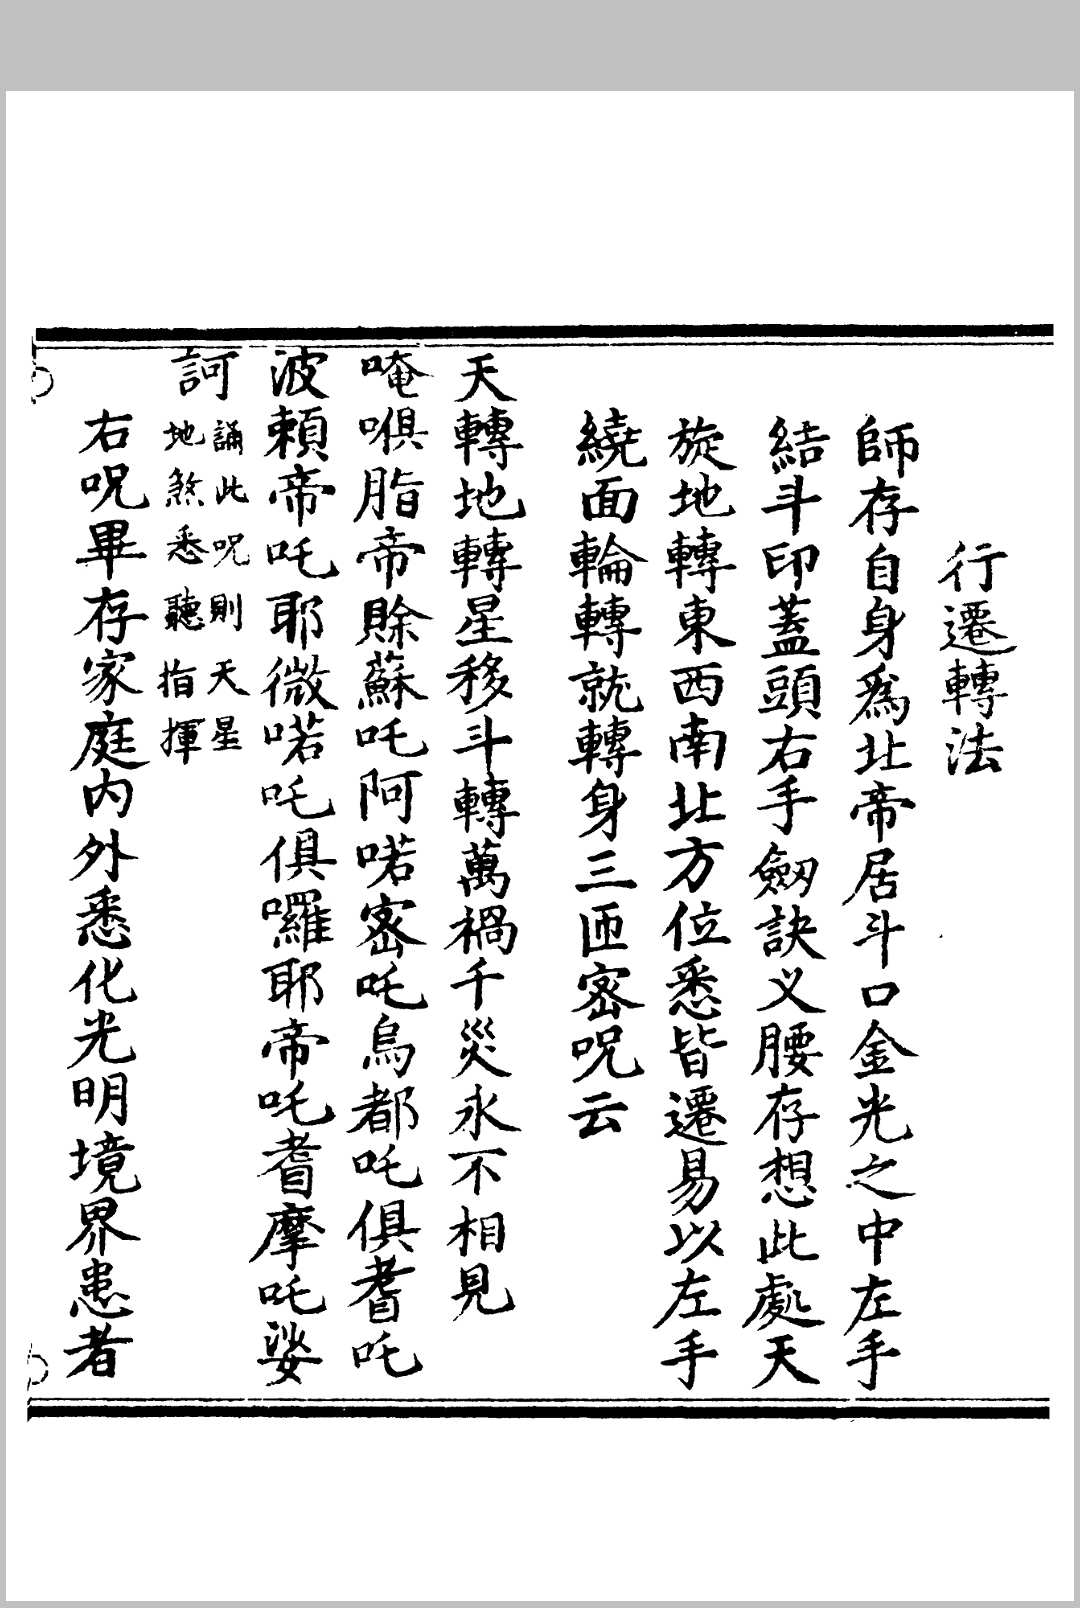 行遷轉法
師存自身爲北帝居斗口金光之中左手
結斗印蓋頭右手劒訣义腰存想此處天
旋地轉東西南北方位悉皆遷易以左手
繞面輪轉就轉身三匝宻呪云
天轉地轉星移斗轉萬禍千災永不相見
唵㗋脂帝賖蘇吒阿喏宻吒烏都吒俱耆吒
波賴帝吒耶微喏吒俱囉耶帝吒耆摩吒娑
訶
誦此呪則天星
地煞悉聽指揮
右呪畢存家庭内外悉化光明境界患者